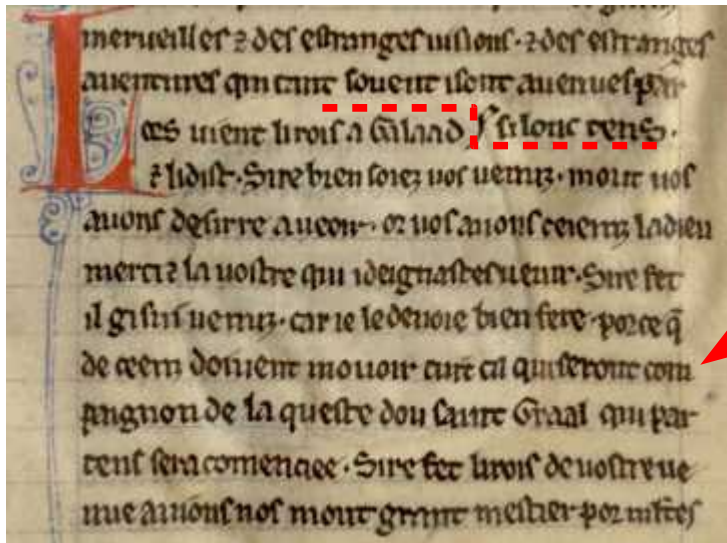 merueilles ⁊ des estranges uisions. ⁊ des estranges
auentures qui tant souent isont auenues par
Lors uient lirois a Galaad si lonc tens.
⁊ li dist. Sire bien soiez uos uenuz. mout uos
auons desirre aueoir. or uos auons ceienz ladieu
merci ⁊ la uostre qui i deignastes uenir. Sire fet
il gi sui uenuz. car ie le deuoie bien fere. por ce q̃
de ceenz doiuent mouoir tuit cil qui seront com
paignon de la queste dou saint Graal qui par
tens sera comenciee. Sire fet lirois de uostre ue
nue auions nos mout grant mestier por